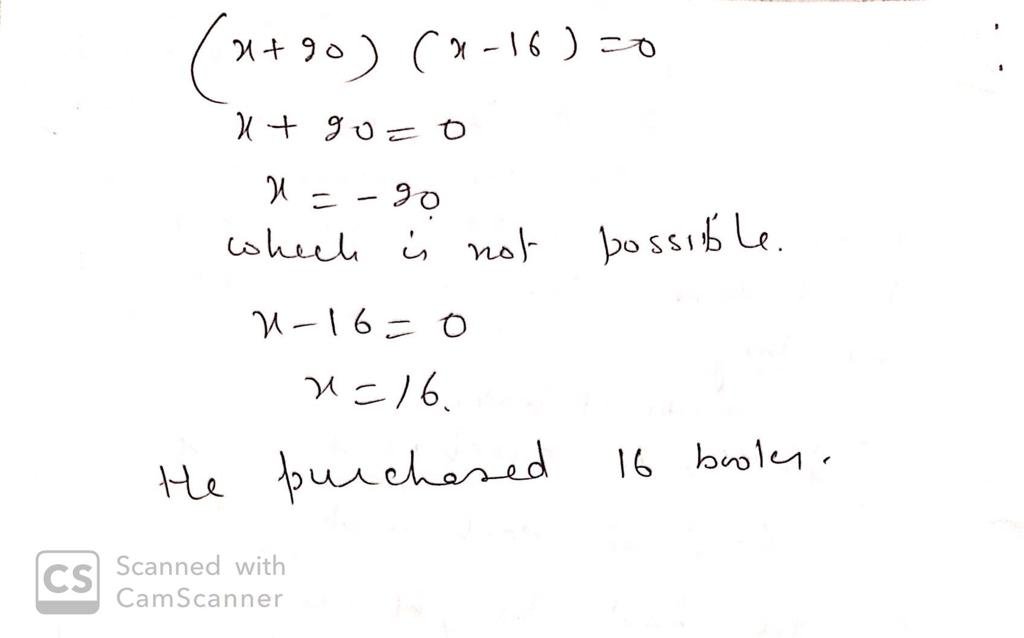 (x+90) (x-16) =0
x + 90 = 0
x = - 90
which is not possible.
x-16= 0
x =16.
He purchased 16 books.
CS Scanned with
CamScanner